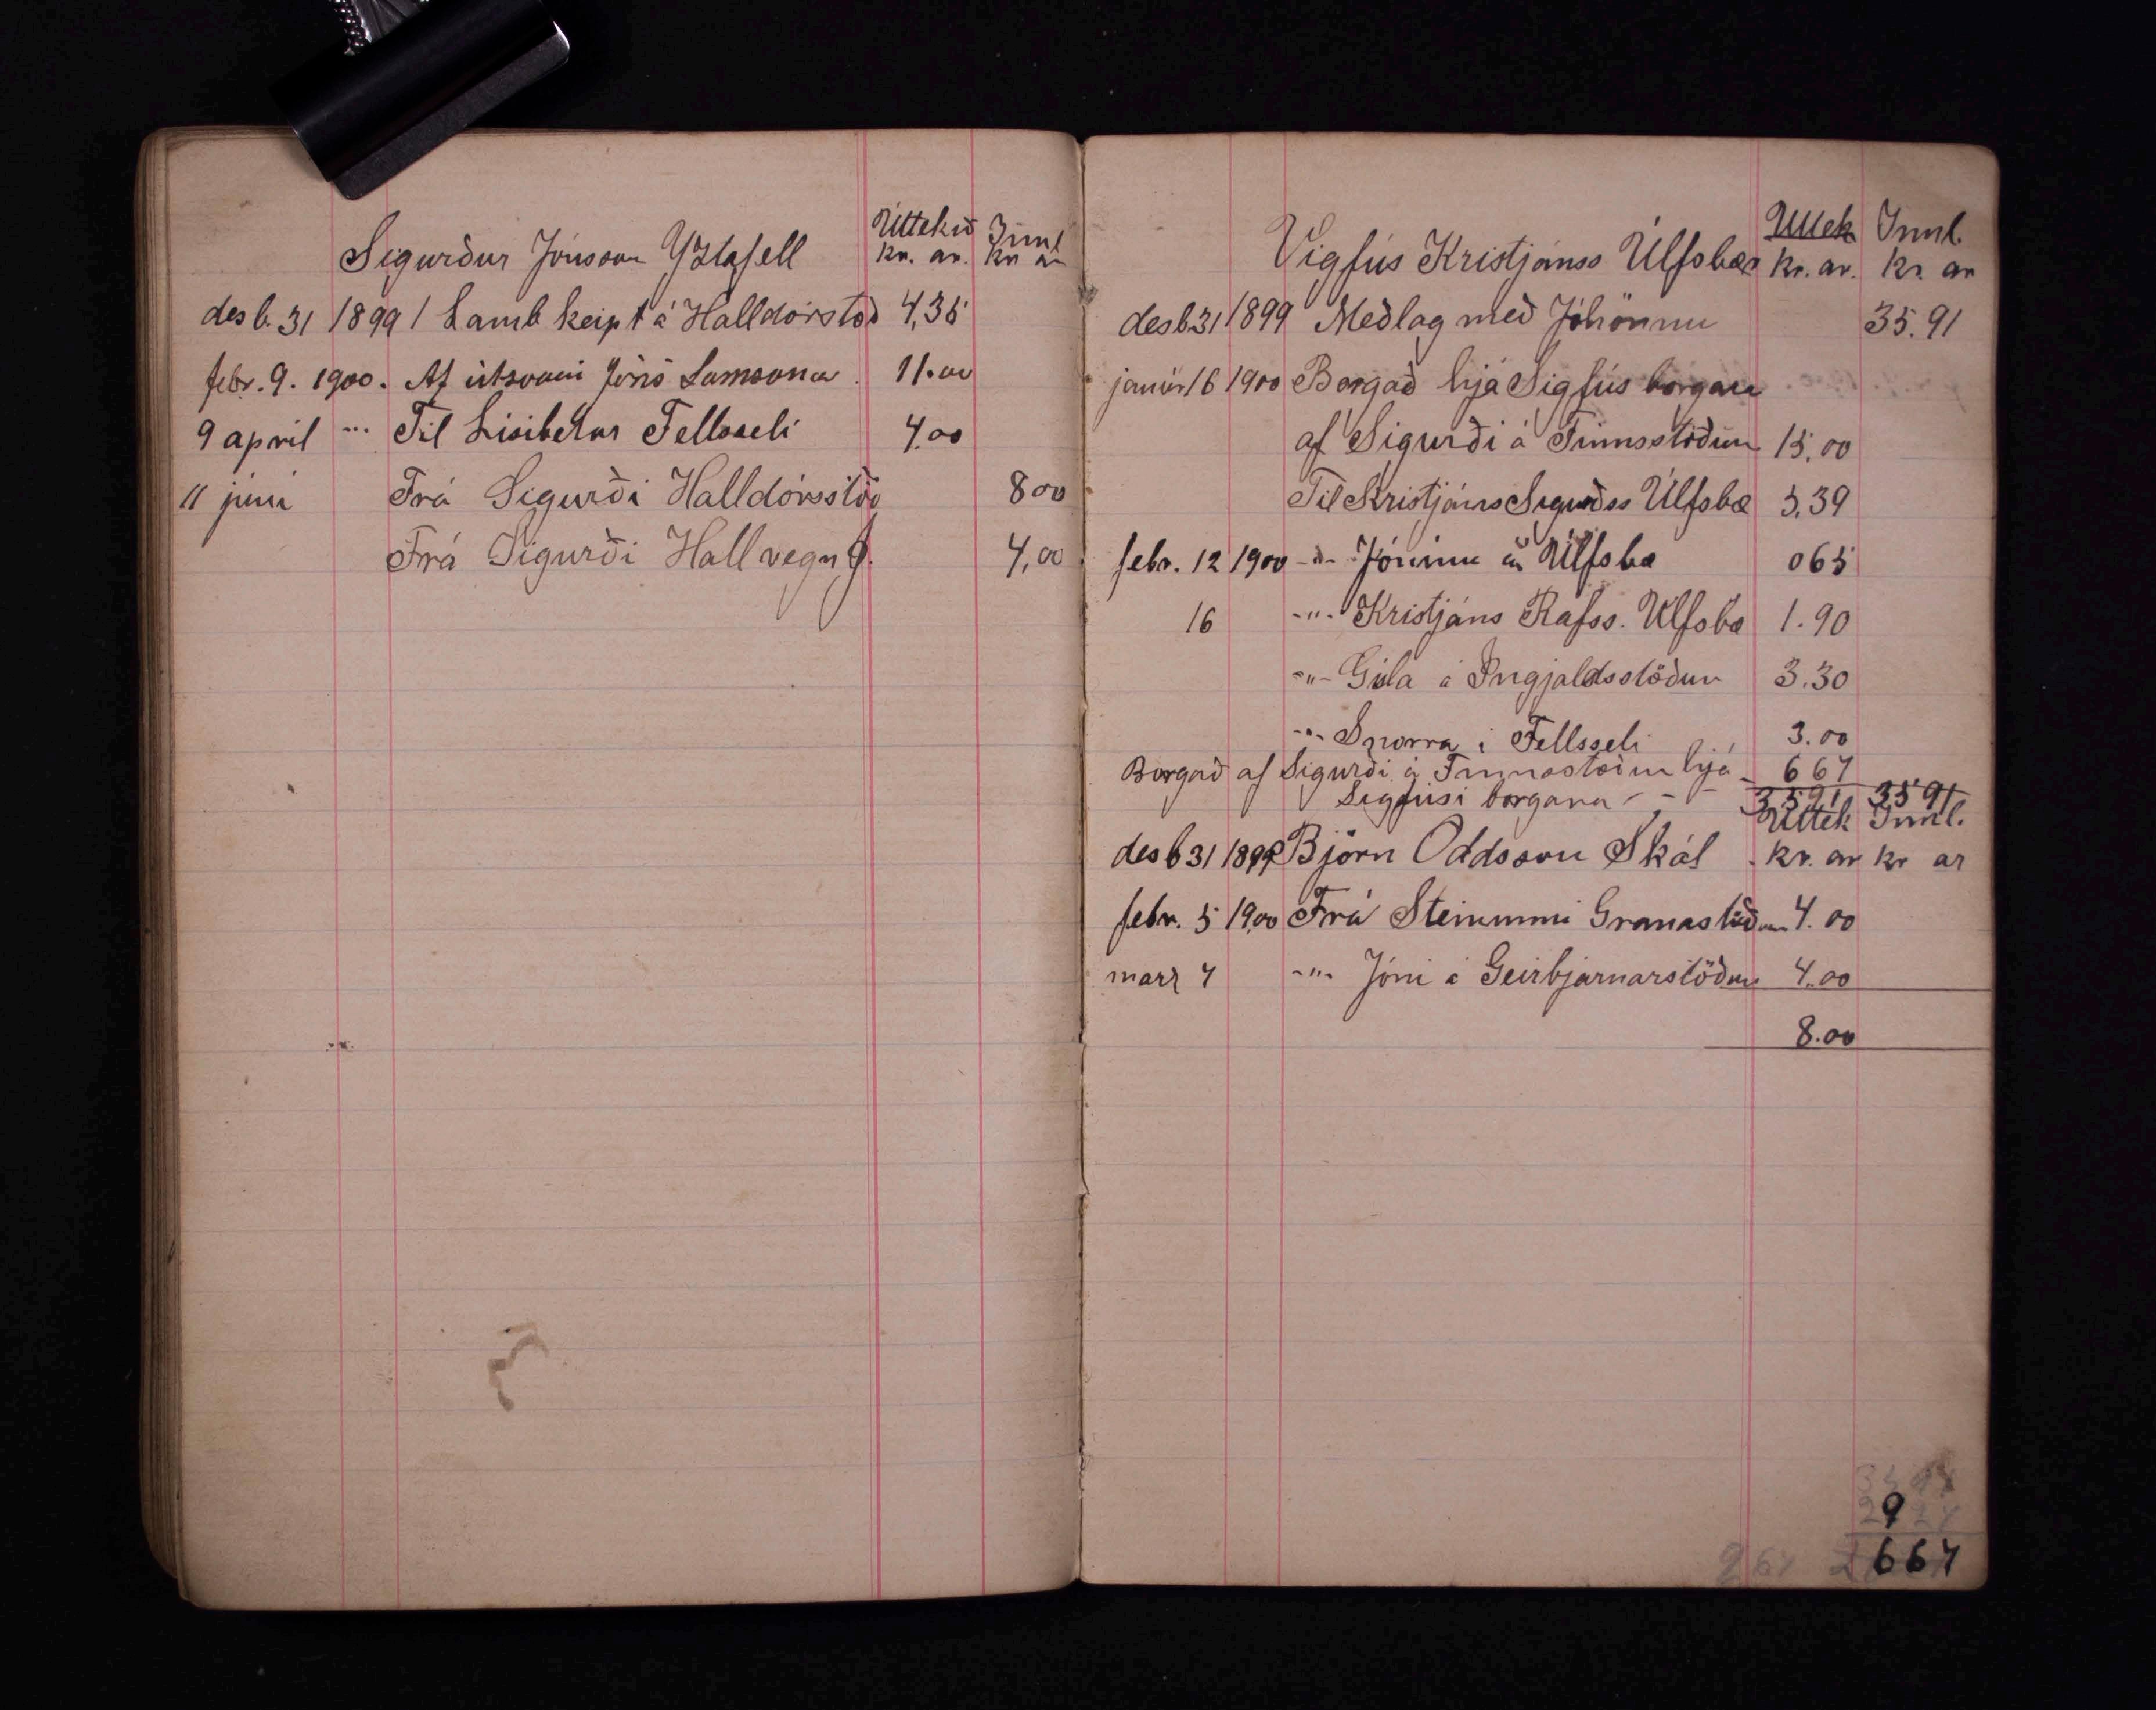 Úttekið Innl
Sigurður Jónsson Yztafell kr. ar. kr ar
desb. 31 1899 1 Lamb keipt á Halldórstöð 4,35
febr. 9. 1900. Af útsvari Jóns Samsonar 11.00
9 april -"- Til Lisibetar Fellsseli 4.00
11 júní Frá Sigurði Halldórsstöð 8 00
Frá Sigurði Hallvegna 4,00
Úttek Innl.
Vigfús Kristjánss Úlfsbæ kr. ar. kr. ar
desb. 31 1899 Meðlag með Jóhönnu 35.91
janúr 16 1900 Borgað hjá Sigfús borgara
af Sigurði á Finnsstöðum 15.00
Til Kristjáns Sigurðss Úlfsbæ 5.39
febr. 12 1900 -"- Jóninu á Úlfsbæ 065
16 -"- Kristjáns Rafss. Úlfsbæ 1.90
-"- Gísla á Ingjaldsstöðum 3.30
-"- Snorra í Fellsseli 3.00
Borgað af Sigurði á Finnsstöðum hjá - 667
Sigfúsi borgara - - - 3591 3591
Úttek Innl.
desb 31 1899 Björn Oddsson Skál kr. ar kr ar
febr. 5 1900 Frá Steinunni Granastöðum 4.00
marz 4 -"- Jóni á Geirbjarnarstöðum 4.00
8.00
667